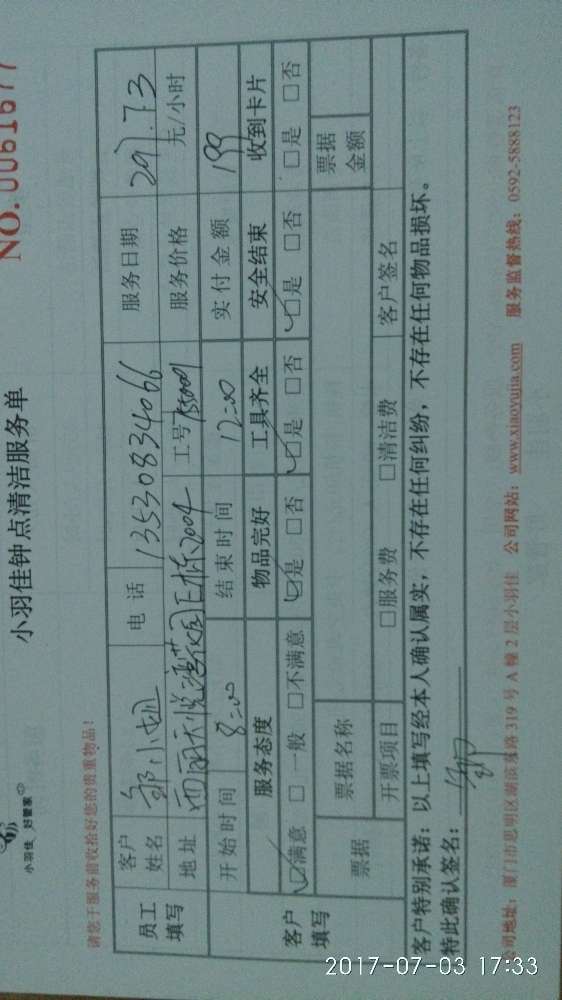 小羽佳 好管家
小羽佳钟点清洁服务单
NO.0061677
请您于服务前收拾好您的贵重物品!
员工填写 客户姓名 邹小姐 电话 13530834066 服务日期 2017.7.3
地址 西丽 悦 园 2004 工号 服务价格 元/小时
客户填写 开始时间 8:00 结束时间 12:00 实付金额 199
服务态度 物品完好 工具齐全 安全结束 收到卡片
☑满意 □一般 □不满意 ☑是 □否 ☑是 □否 ☑是 □否 □是 □否
票据 票据名称 票据金额
开票项目 □服务费 □清洁费 客户签名
客户特别承诺:以上填写经本人确认属实,不存在任何纠纷,不存在任何物品损坏。
特此确认签名:
公司地址:厦门市思明区湖滨东路 319 号 A 幢 2 层小羽佳 公司网站:www.xiaoyujia.com 服务监督热线:0592-5888123
2017-07-03 17:33